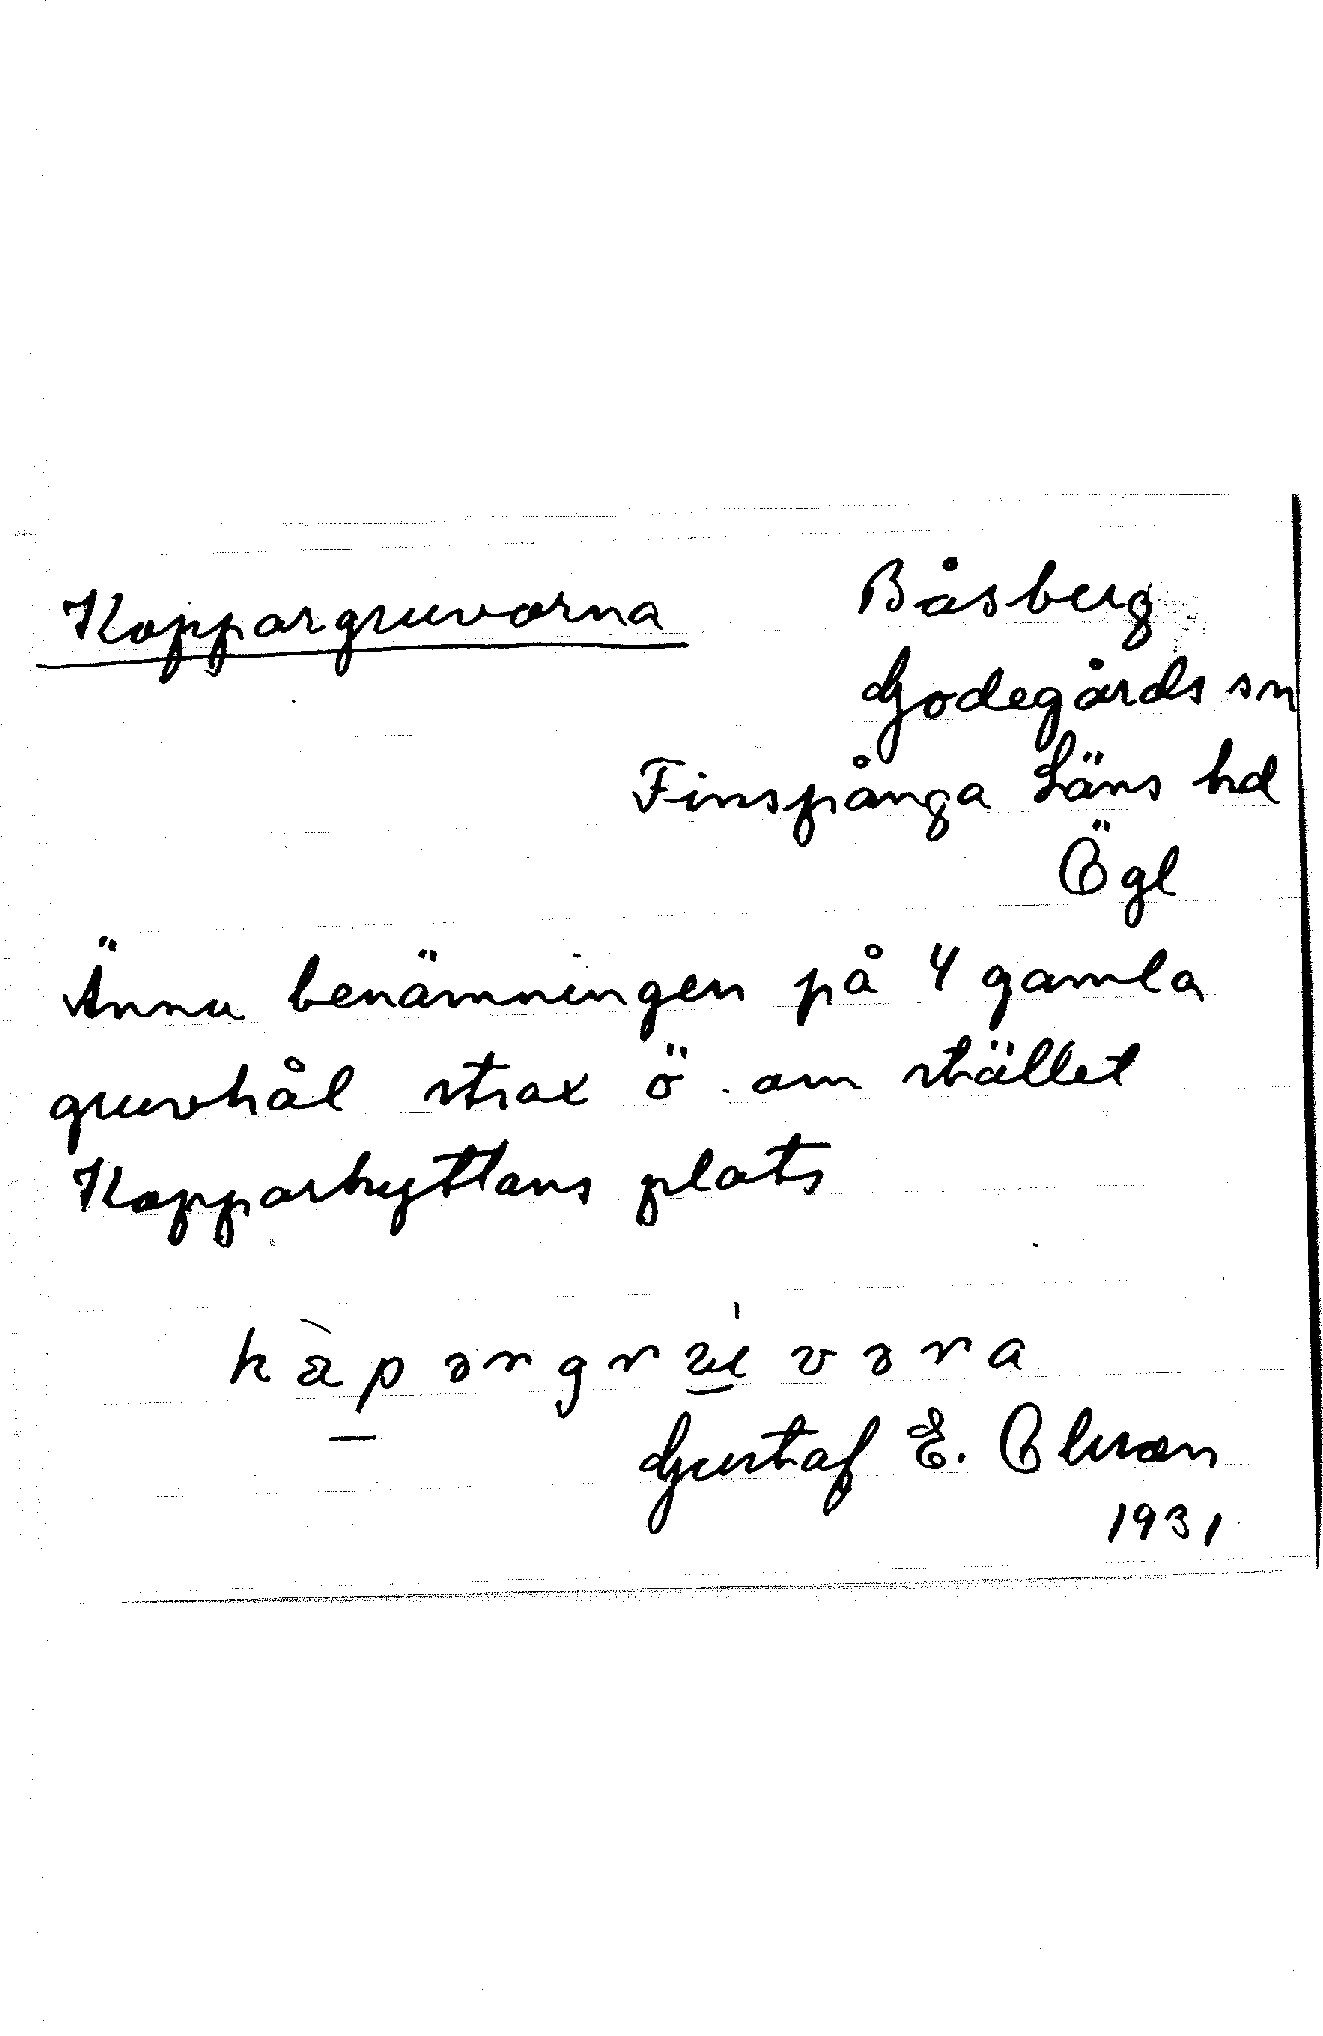 Koppargruvorna
Båsberg
Godegårds sn
Finspånga Läns hd
Ögl
Ännu benämningen på 4 gamla
gruvhål strax ö om stället
Kopparhyttans plats
kàpərgrùvəra
Gustaf E. Olsson
1931